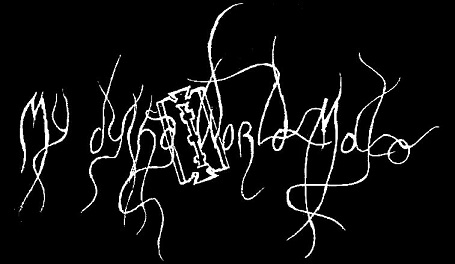 My dying World Mako